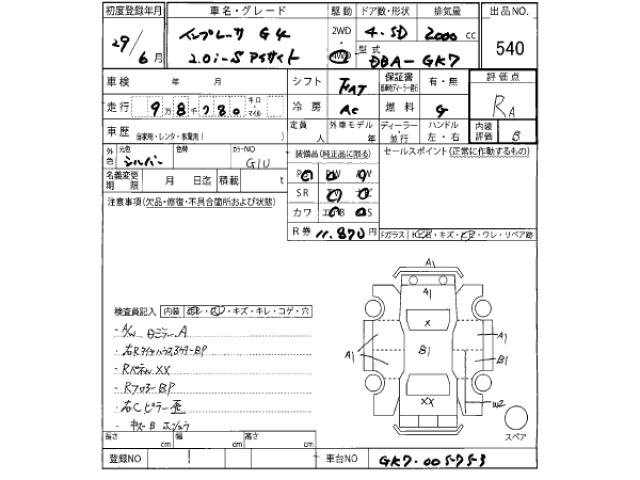 初度登録年月 車名・グレード 駆動 ドア数・形状 排気量 出品NO.
29/6月 インプレーサ G4 2WD 4・5D 2000cc 540
2.0i-S アイサイト 4WD 型式 DBA-GK7
車検 年 月 シフト FAT 保証書 有・無 評価点
走行 9万8千780 キロ・マイル 冷房 AC 燃料 G RA
車歴 自家用・レンタ・事業用( ) 定員 人 外車モデル 年 ディーラー・並行 ハンドル 左・右 内装評価 B
外色 元色 シルバー 色替 カラーNO G1U 装備品(純正品に限る) セールスポイント(正常に作動するもの)
名義変更期限 月 日迄 積載 t PS PW AW
注意事項(欠品・修復・不具合箇所および状態) SR TV
カワ
R券 11,870円 Fガラス ・キズ・ ・ワレ・リペア跡
A1
A1
X
検査員記入 内装 ・キズ・キレ・コゲ・穴
・A/W 日ミラーA
・右RタイヤハウスアウターBP
・Rパネル XX
・RフロアーBP
・右Cピラー歪
A1 B1 A1
B1
XX
W2
スペア
長さ cm 幅 cm 高さ cm
登録NO 車台NO GK7-005753